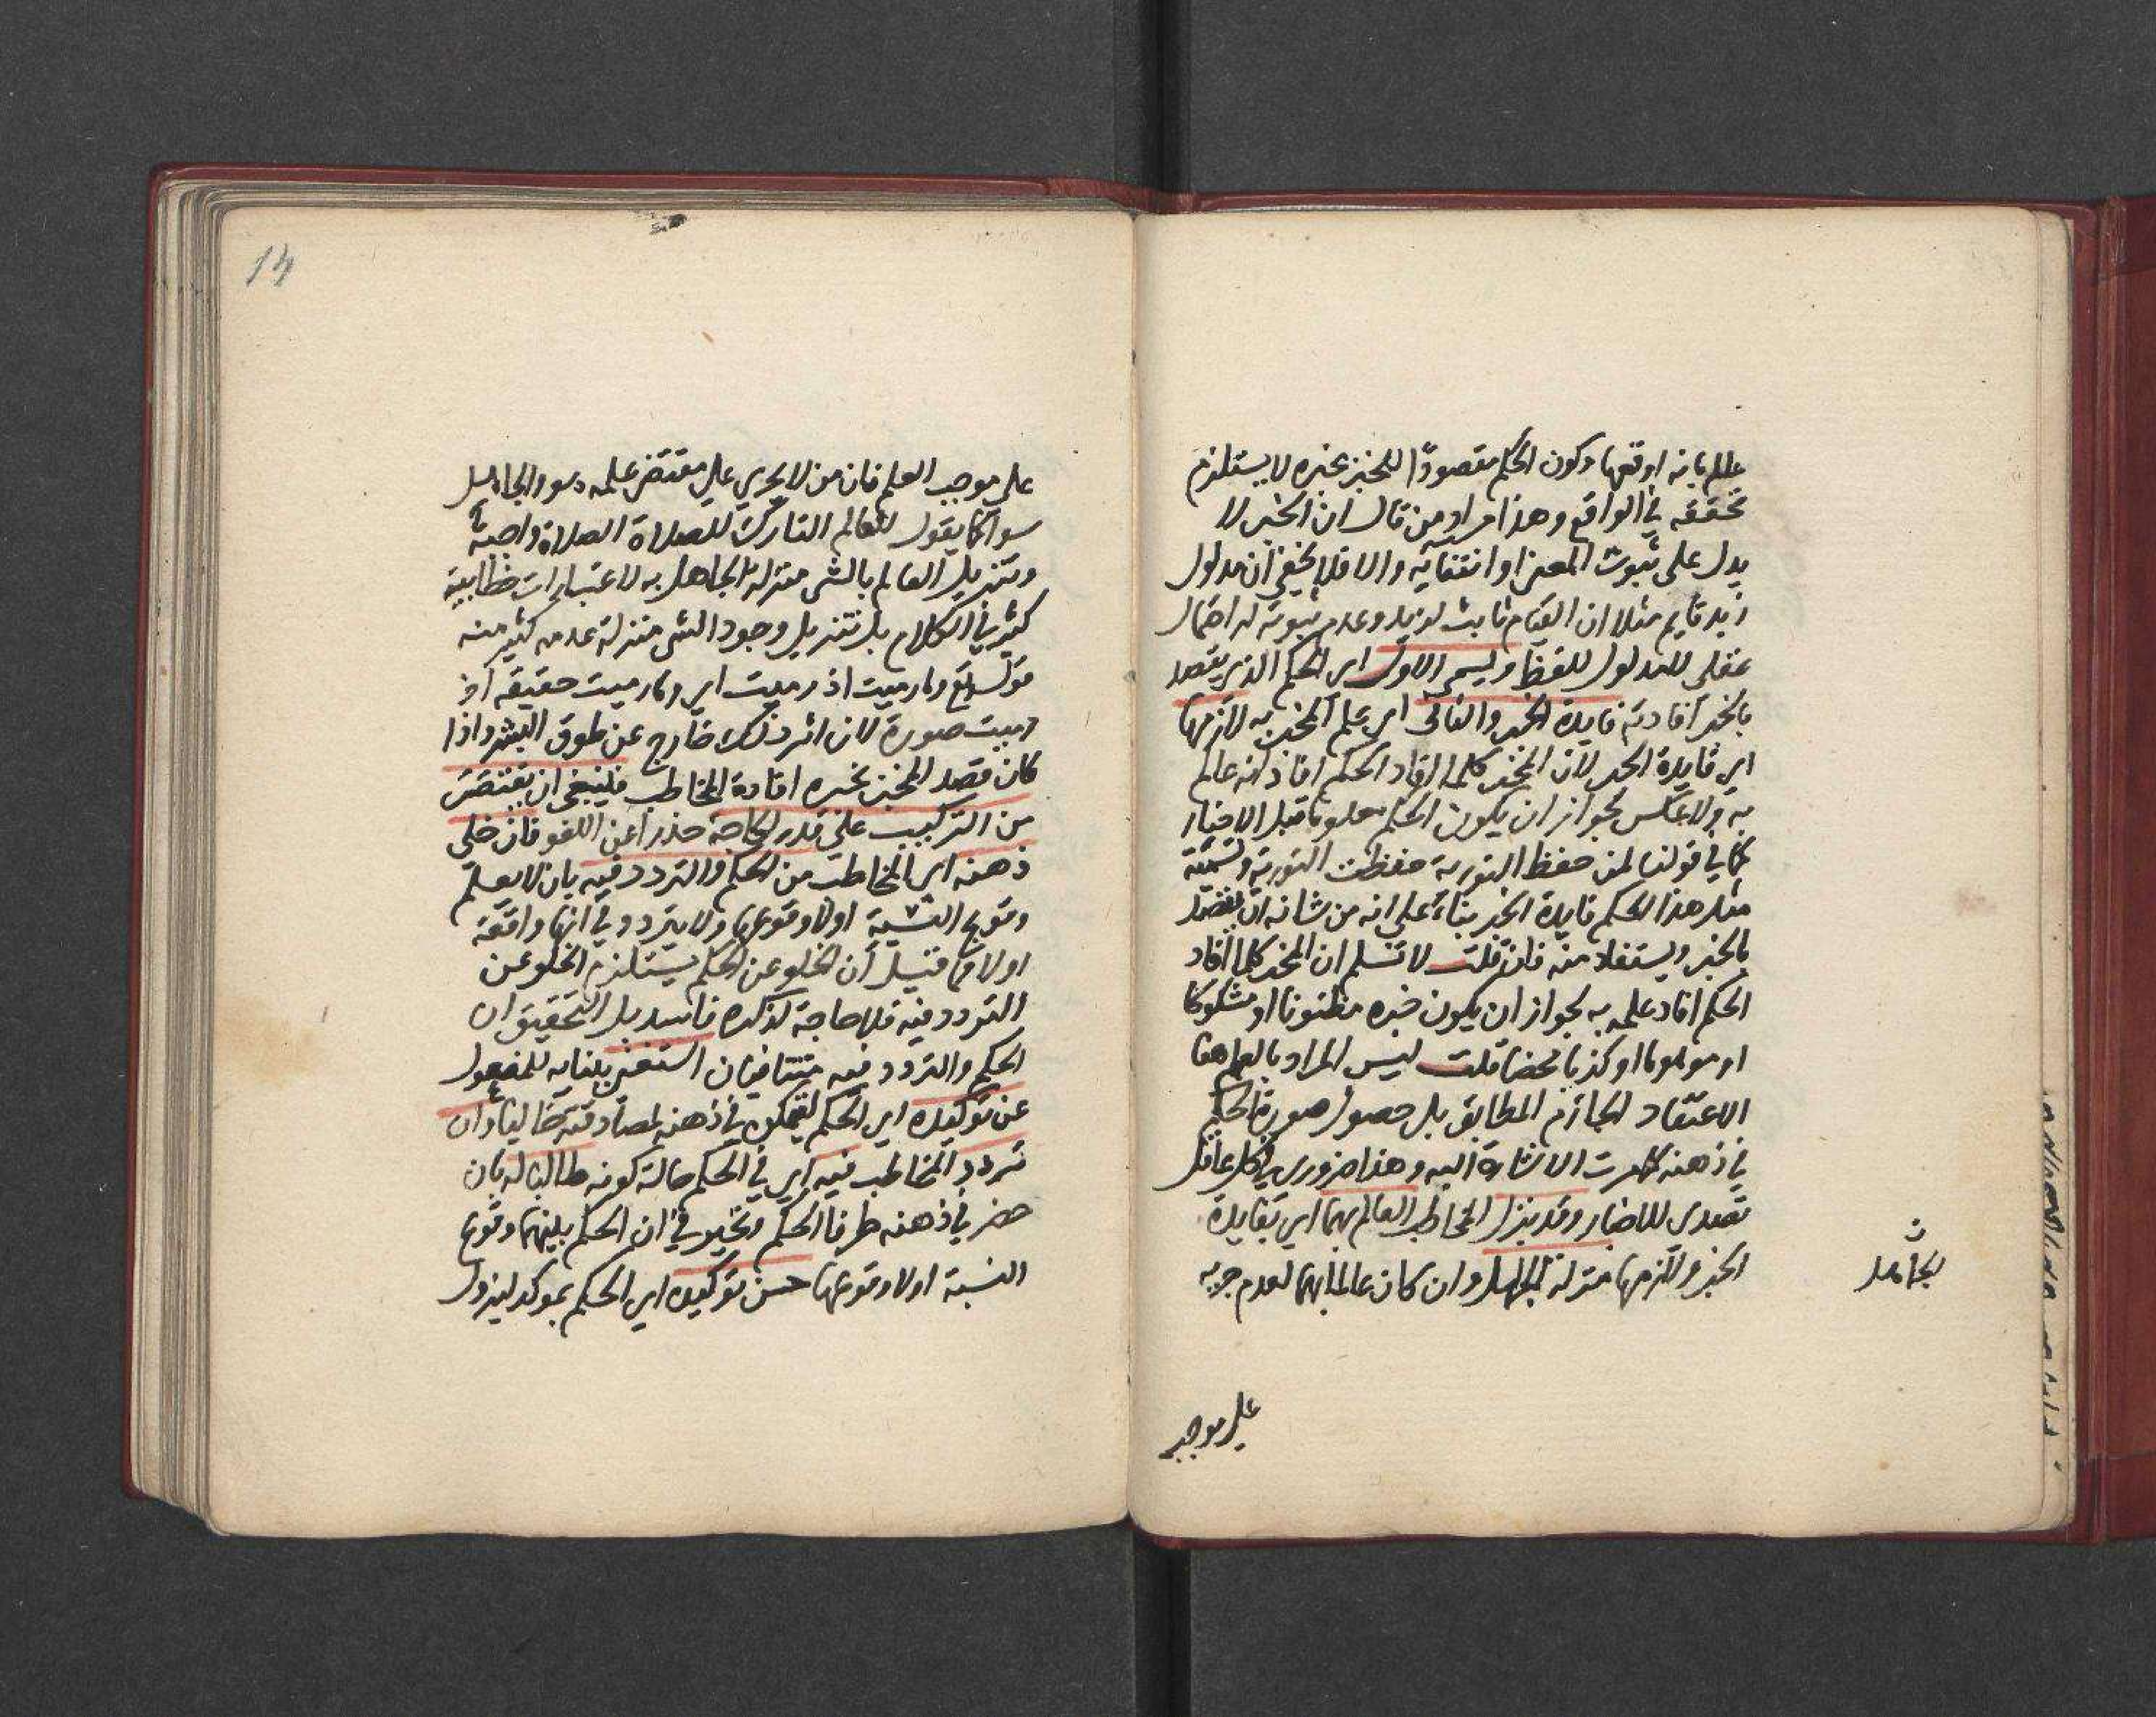 علم بانه اوقعها وكون الحكم مقصودًا للمخبر بخبره لا يستلزم
تحققه في الواقع وهذا مراد من قال ان الخبر لا
يدل على ثبوت المعنى او انتفايه والا فلا يخفى ان مدلول
زيد قايم مثلا ان القيام ثابت لزيد وعدم ثبوته له احتمال
عقلي للمدلول للفظ ويسمى الاول اى الحكم الذي يقصد
بالخبر افادته فايدة الخبر والثانى اي علم المخبر به لازمها
اي فايدة الخبر لان المخبر كلما افاد الحكم افاد انه عالم
به ولا عكس لجواز ان يكون الحكم معلوما قبل الاخبار
كما في قولنا لمن حفظ التورية حفظت التورية وتسمية
مثل هذا الحكم فايدة الخبر بناء على انه من شانه ان يقصد
بالخبر ويستفاد منه فان قلت لا نسلم ان المخبر كلما افاد
الحكم افاد علمه به لجواز ان يكون خبره مظنونا او مشكوكا
او موهوما او كذبا محضا قلت ليس المراد بالعلم هنا
الاعتقاد الجازم المطابق بل حصول صورة الحكم
في ذهنه كما مرت الاشارة اليه وهذا ضروري في كل عاقل
تصدى للاخبار وقد ينزل المخاطب العالم بهما اي بفايدة
الخبر ولازمها منزلة الجاهل وان كان عالما بهما لعدم جريه
الجاهل
على موجب
14
على موجب العلم فان من لا يجري على مقتضى علمه هو والجاهل
سوا كما يقول للعالم التارك للصلاة الصلاة واجبة
وتنزيل العالم بالشى منزلة الجاهل به لاعتبارات خطابية
كثير في الكلام بل تنزيل وجود الشى منزلة عدمه كثير منه
قوله تع وما رميت اذ رميت اي وما رميت حقيقة اذ
رميت صورة لان اثر ذلك خارج عن طوق البشر واذا
كان قصد المخبر بخبره افادة المخاطب فينبغي ان يقتصر
من التركيب على قدر الحاجة حذرا عن اللغو فان خلى
ذهنه اى المخاطب من الحكم والتردد فيه بان لا يعلم
وقوع النسبة اولا وقوعها ولا يتردد في انها واقعة
اولا فما قيل ان الخلو عن الحكم يستلزم الخلو عن
التردد فيه فلا حاجة لذكره فاسد بل التحقيق ان
الحكم والتردد فيه متنافيان استغنى ببنايه للمفعول
عن توكيده اي الحكم لتمكن في ذهنه لمصادفته خاليا وان
تردد المخاطب فيه اي في الحكم حالة كونه طالبا له بان
حضر في ذهنه طرفا الحكم وتحير في ان الحكم بينهما وقوع
النسبة اولا وقوعها حسن توكيده اي الحكم بموكد ليزول